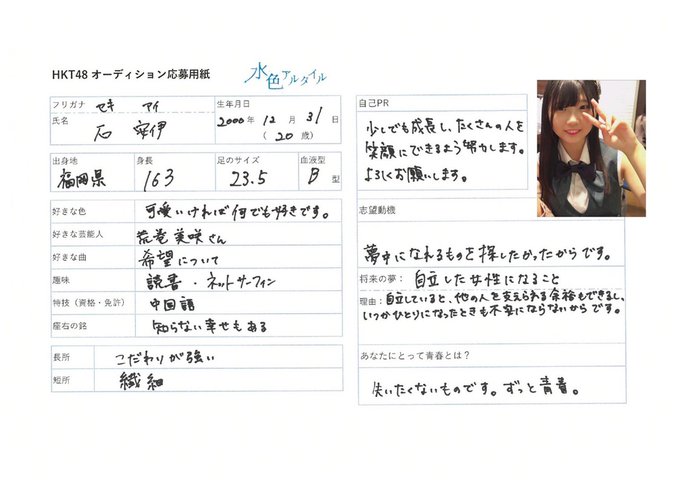 HKT48 オーディション応募用紙
水色アルタイル
フリガナ セキ アイ
氏名 石 安伊
生年月日
2000年 12月 31日
(20歳)
出身地 福岡県
身長 163
足のサイズ 23.5
血液型 B型
好きな色 可愛いければ何でも好きです。
好きな芸能人 荒巻美咲さん
好きな曲 希望について
趣味 読書・ネットサーフィン
特技(資格・免許) 中国語
座右の銘 知らない幸せもある
長所 こだわりが強い
短所 繊細
自己PR
少しでも成長し、たくさんの人を
笑顔にできるよう努力します。
よろしくお願いします。
志望動機
夢中になれるものを探したかったからです。
将来の夢: 自立した女性になること
理由: 自立していると、他の人を支えられる余裕もできるし、
いつかひとりになったときも不安にならないからです。
あなたにとって青春とは?
失いたくないものです。ずっと青春。